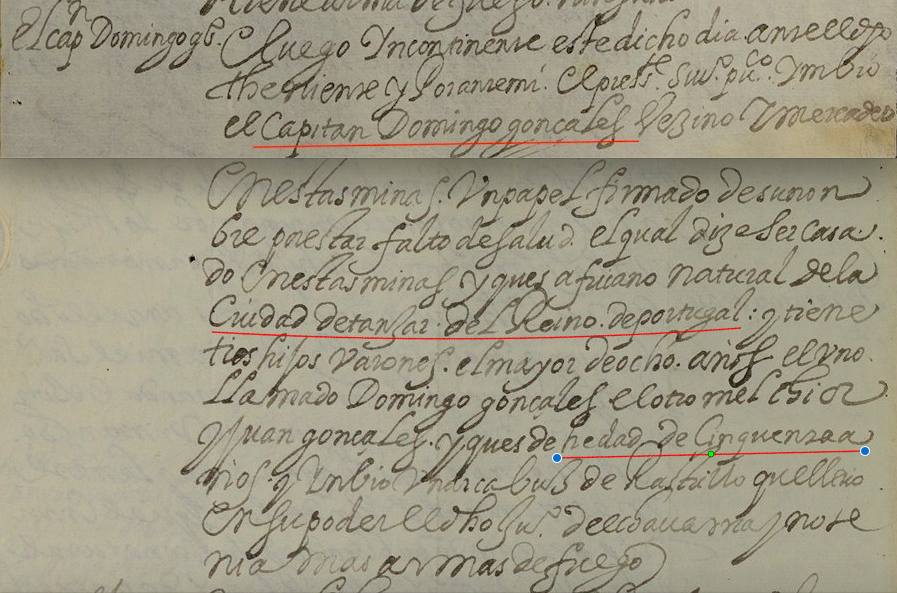 El capn Domingo gs.
E luego Incontinente este dicho dia ante el dho
theniente y Por ante mi. El presste. ssno. puco. Ymbio
el Capitan Domingo goncales Vezino Y mercader
En estas minas. Un papel firmado de su non
bre por estar falto de salud. el qual dize ser Casa
do En estas minas y ques afuano natural de la
Ciudad de tanjar. del Reino. de portugal: y tiene
tres hijos Varones. el mayor de ocho. años el uno.
LLamado Domingo goncales el otro melchior
Y Juan goncales. y ques de hedad de Cinquenta a
ños. y Unbio Un arcabus de Rastrillo que lleuo
En su poder el dho ssno. de y no te
nia mas armas de fuego